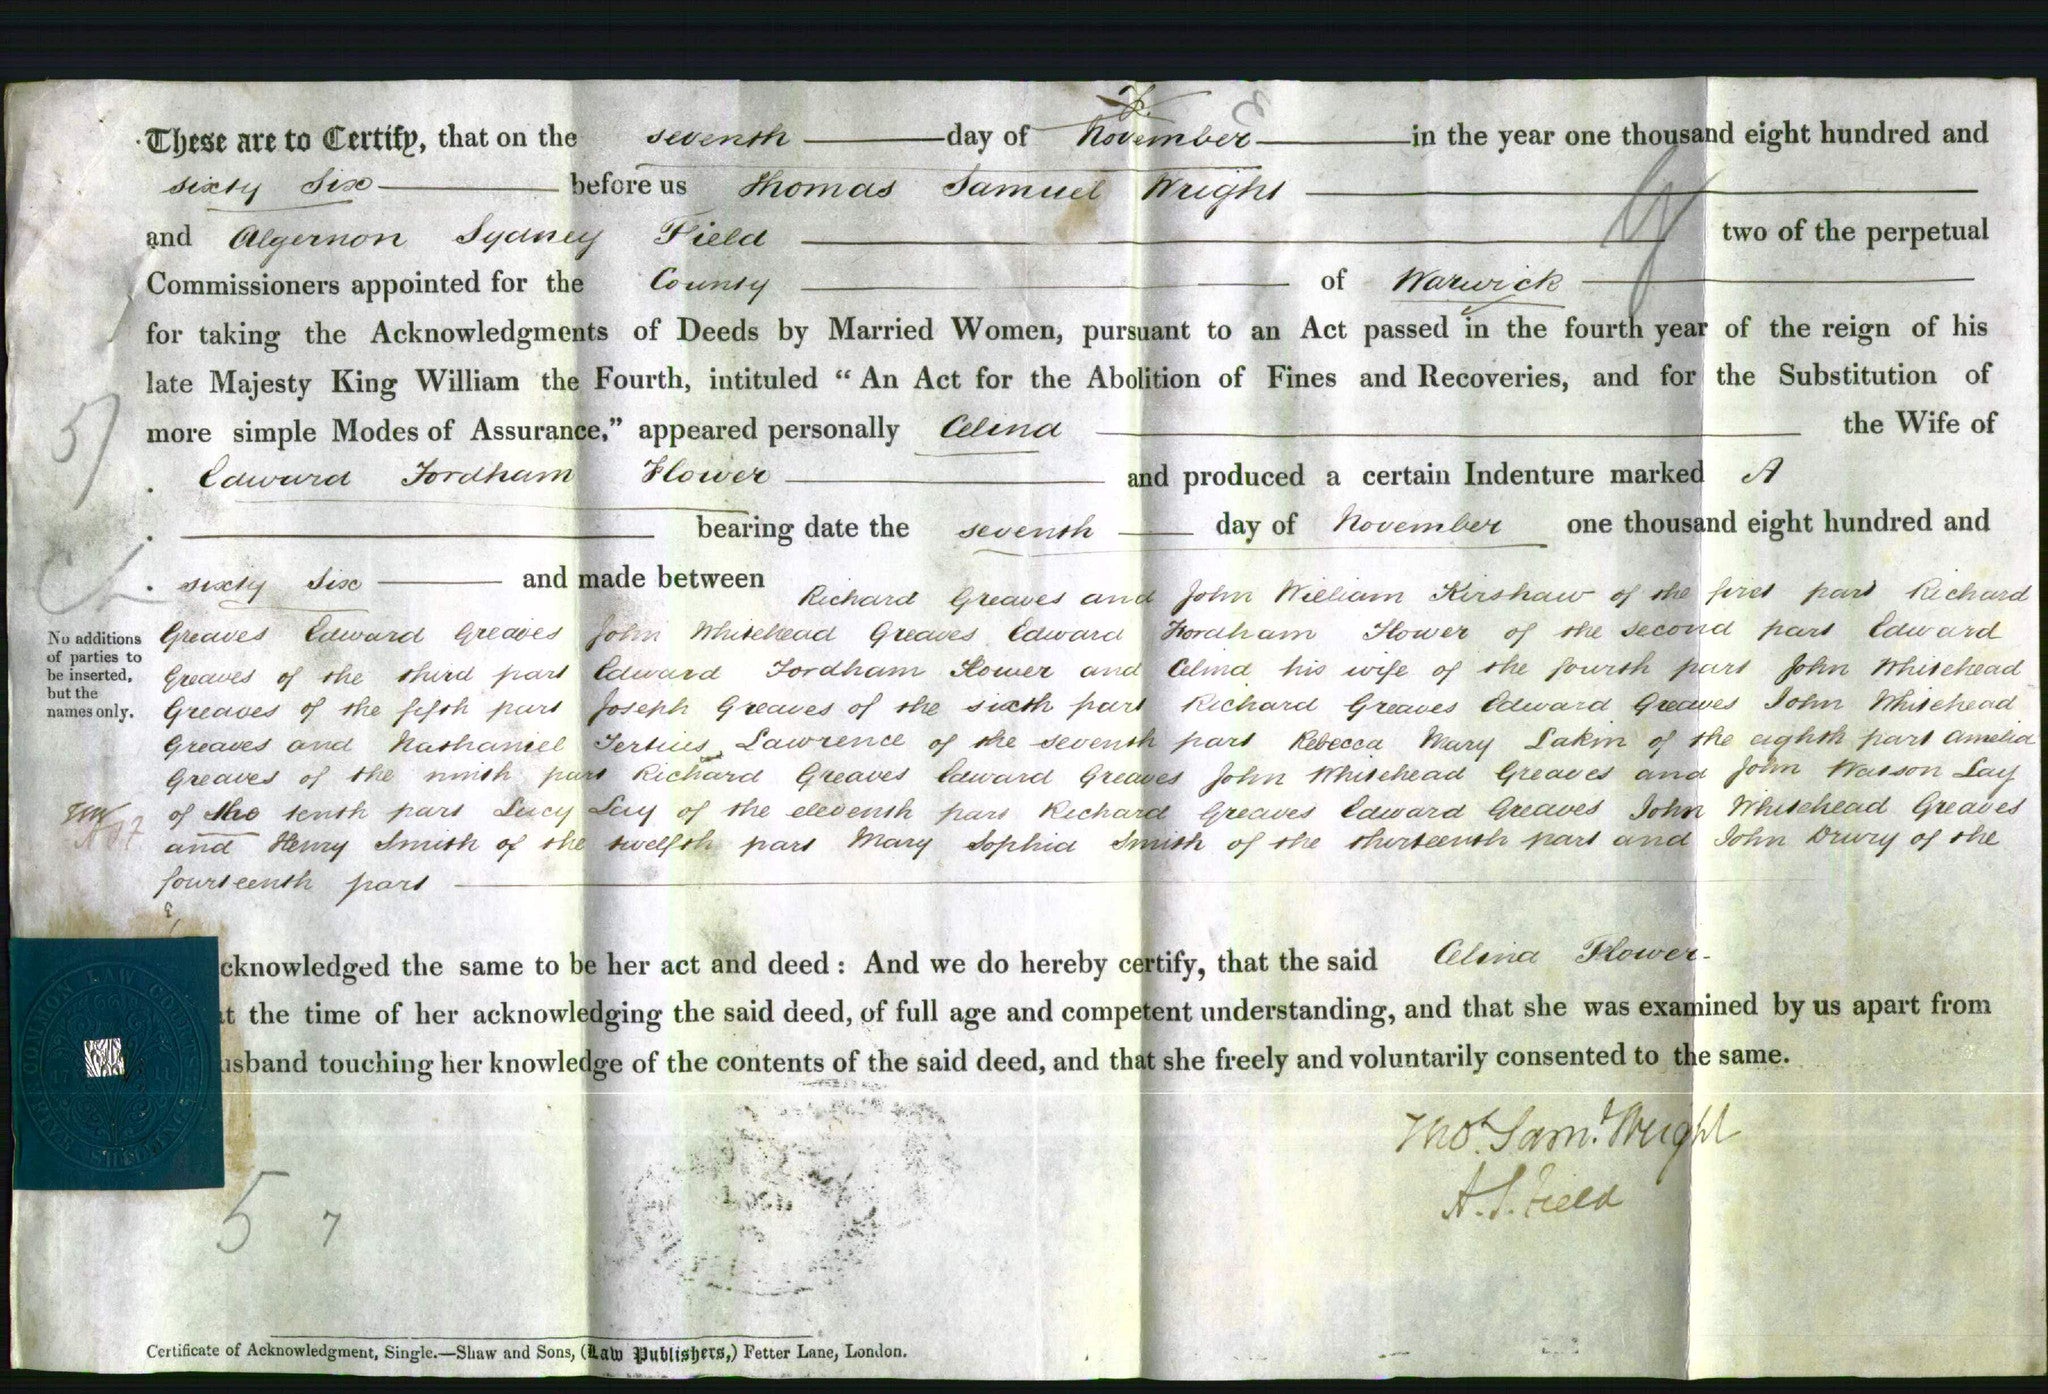 These are to Certify, that on the seventh day of November in the year one thousand eight hundred and
sixty six before us Thomas Samuel Wright
and Algernon Sydney Field two of the perpetual
Commissioners appointed for the County of Warwick
for taking the Acknowledgments of Deeds by Married Women, pursuant to an Act passed in the fourth year of the reign of his
late Majesty King William the Fourth, intituled “An Act for the Abolition of Fines and Recoveries, and for the Substitution of
more simple Modes of Assurance,” appeared personally Celina the Wife of
Edward Fordham Flower and produced a certain Indenture marked A
bearing date the seventh day of November one thousand eight hundred and
sixty six and made between Richard Greaves and John William Kirshaw of the first part Richard
Greaves Edward Greaves John Whitehead Greaves Edward Fordham Flower of the second part Edward
Greaves of the third part Edward Fordham Flower and Celina his wife of the fourth part John Whitehead
Greaves of the fifth part Joseph Greaves of the sixth part Richard Greaves Edward Greaves John Whitehead
Greaves and Nathaniel Tertius Lawrence of the seventh part Rebecca Mary Lakin of the eighth part Amelia
Greaves of the ninth part Richard Greaves Edward Greaves John Whitehead Greaves and John Watson Lay
of the tenth part Lucy Lay of the eleventh part Richard Greaves Edward Greaves John Whitehead Greaves
and Henry Smith of the twelfth part Mary Sophia Smith of the thirteenth part and John Drury of the
fourteenth part
No additions
of parties to
be inserted,
but the
names only.
cknowledged the same to be her act and deed: And we do hereby certify, that the said Celina Flower
at the time of her acknowledging the said deed, of full age and competent understanding, and that she was examined by us apart from
usband touching her knowledge of the contents of the said deed, and that she freely and voluntarily consented to the same.
Thos. Saml. Wright
A. S. Field
THE COMMON LAW COURTS
FIVE SHILLINGS
5 7
Certificate of Acknowledgment, Single.—Shaw and Sons, (Law Publishers,) Fetter Lane, London.